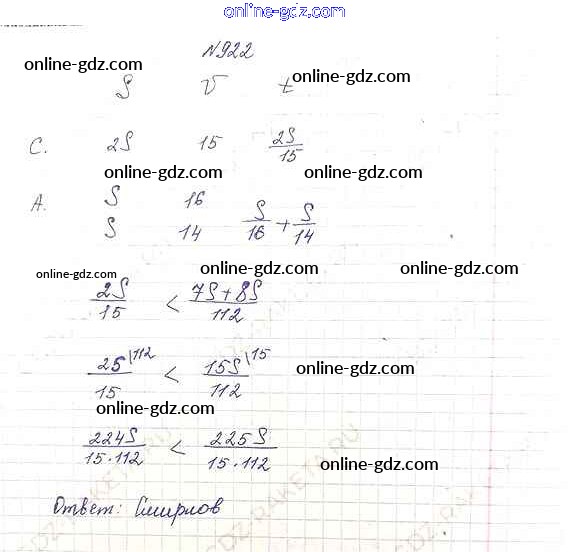 online-gdz.com
N922
online-gdz.com online-gdz.com
S V t
C. 2S 15 2S/15
online-gdz.com online-gdz.com
A. S 16
S 14 S/16 + S/14
online-gdz.com online-gdz.com online-gdz.com
2S/15 < 7S+8S/112
2S|112/15 < 15S|15/112
online-gdz.com
online-gdz.com
224S/15·112 < 225S/15·112
online-gdz.com
Ответ: Смирлов
GDZ-RAKETA.RU